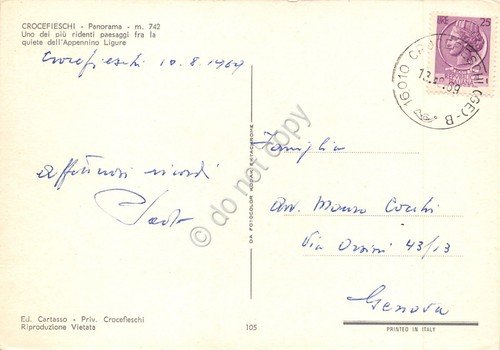 CROCEFIESCHI - Panorama - m. 742
Uno dei più ridenti paesaggi fra la
quiete dell'Appennino Ligure
Crocefieschi 10.8.1969
affettuosi ricordi
Paolo
Ed. Cartasso - Priv. Crocefieschi
Riproduzione Vietata
105
DA FOTOCOLOR KODAK EKTACHROME
LIRE 25
16010 CROCEFIESCHI (GE) - B
13.8.69
Famiglia
avv. Mauro Cocchi
Via Orsini 43/13
Genova
PRINTED IN ITALY
do not copy